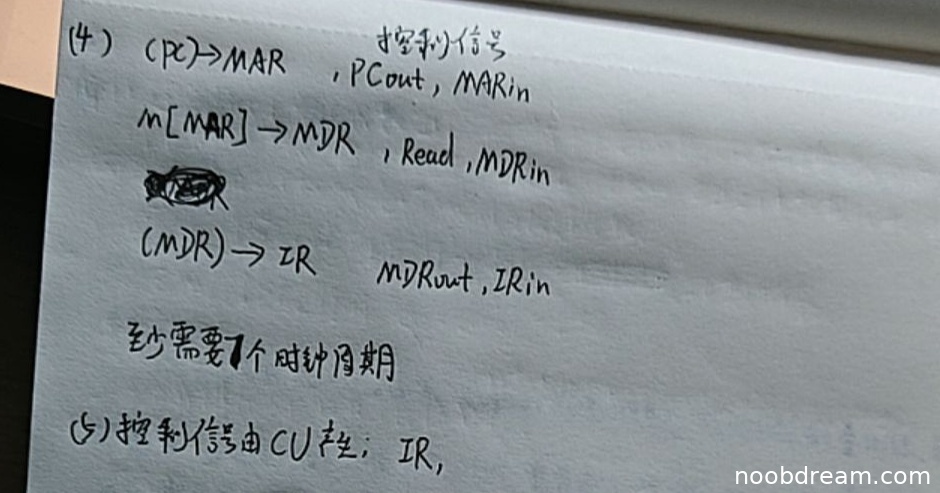 (4) (PC)→MAR , PCout, MARin 控制信号
M[MAR]→MDR , Read, MDRin
(MDR)→ IR MDRout, IRin
至少需要7个时钟周期
(5)控制信号由CU产生; IR,
noobdream.com